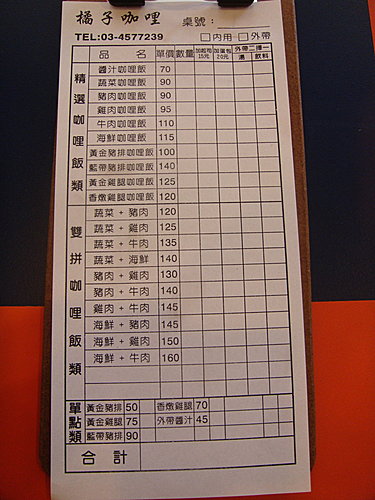 橘子咖哩 桌號:
TEL:03-4577239 □內用 □外帶
品名 單價 數量 加起司15元 加蛋包20元 外帶二擇一 湯 飲料
精選咖哩飯類
醬汁咖哩飯 70
蔬菜咖哩飯 90
豬肉咖哩飯 90
雞肉咖哩飯 95
牛肉咖哩飯 110
海鮮咖哩飯 115
黃金豬排咖哩飯 100
藍帶豬排咖哩飯 140
黃金雞腿咖哩飯 125
香燉雞腿咖哩飯 120
雙拼咖哩飯類
蔬菜 + 豬肉 120
蔬菜 + 雞肉 125
蔬菜 + 牛肉 135
蔬菜 + 海鮮 140
豬肉 + 雞肉 130
豬肉 + 牛肉 140
雞肉 + 牛肉 145
海鮮 + 豬肉 145
海鮮 + 雞肉 150
海鮮 + 牛肉 160
單點類
黃金豬排 50 香燉雞腿 70
黃金雞腿 75 外帶醬汁 45
藍帶豬排 90
合計